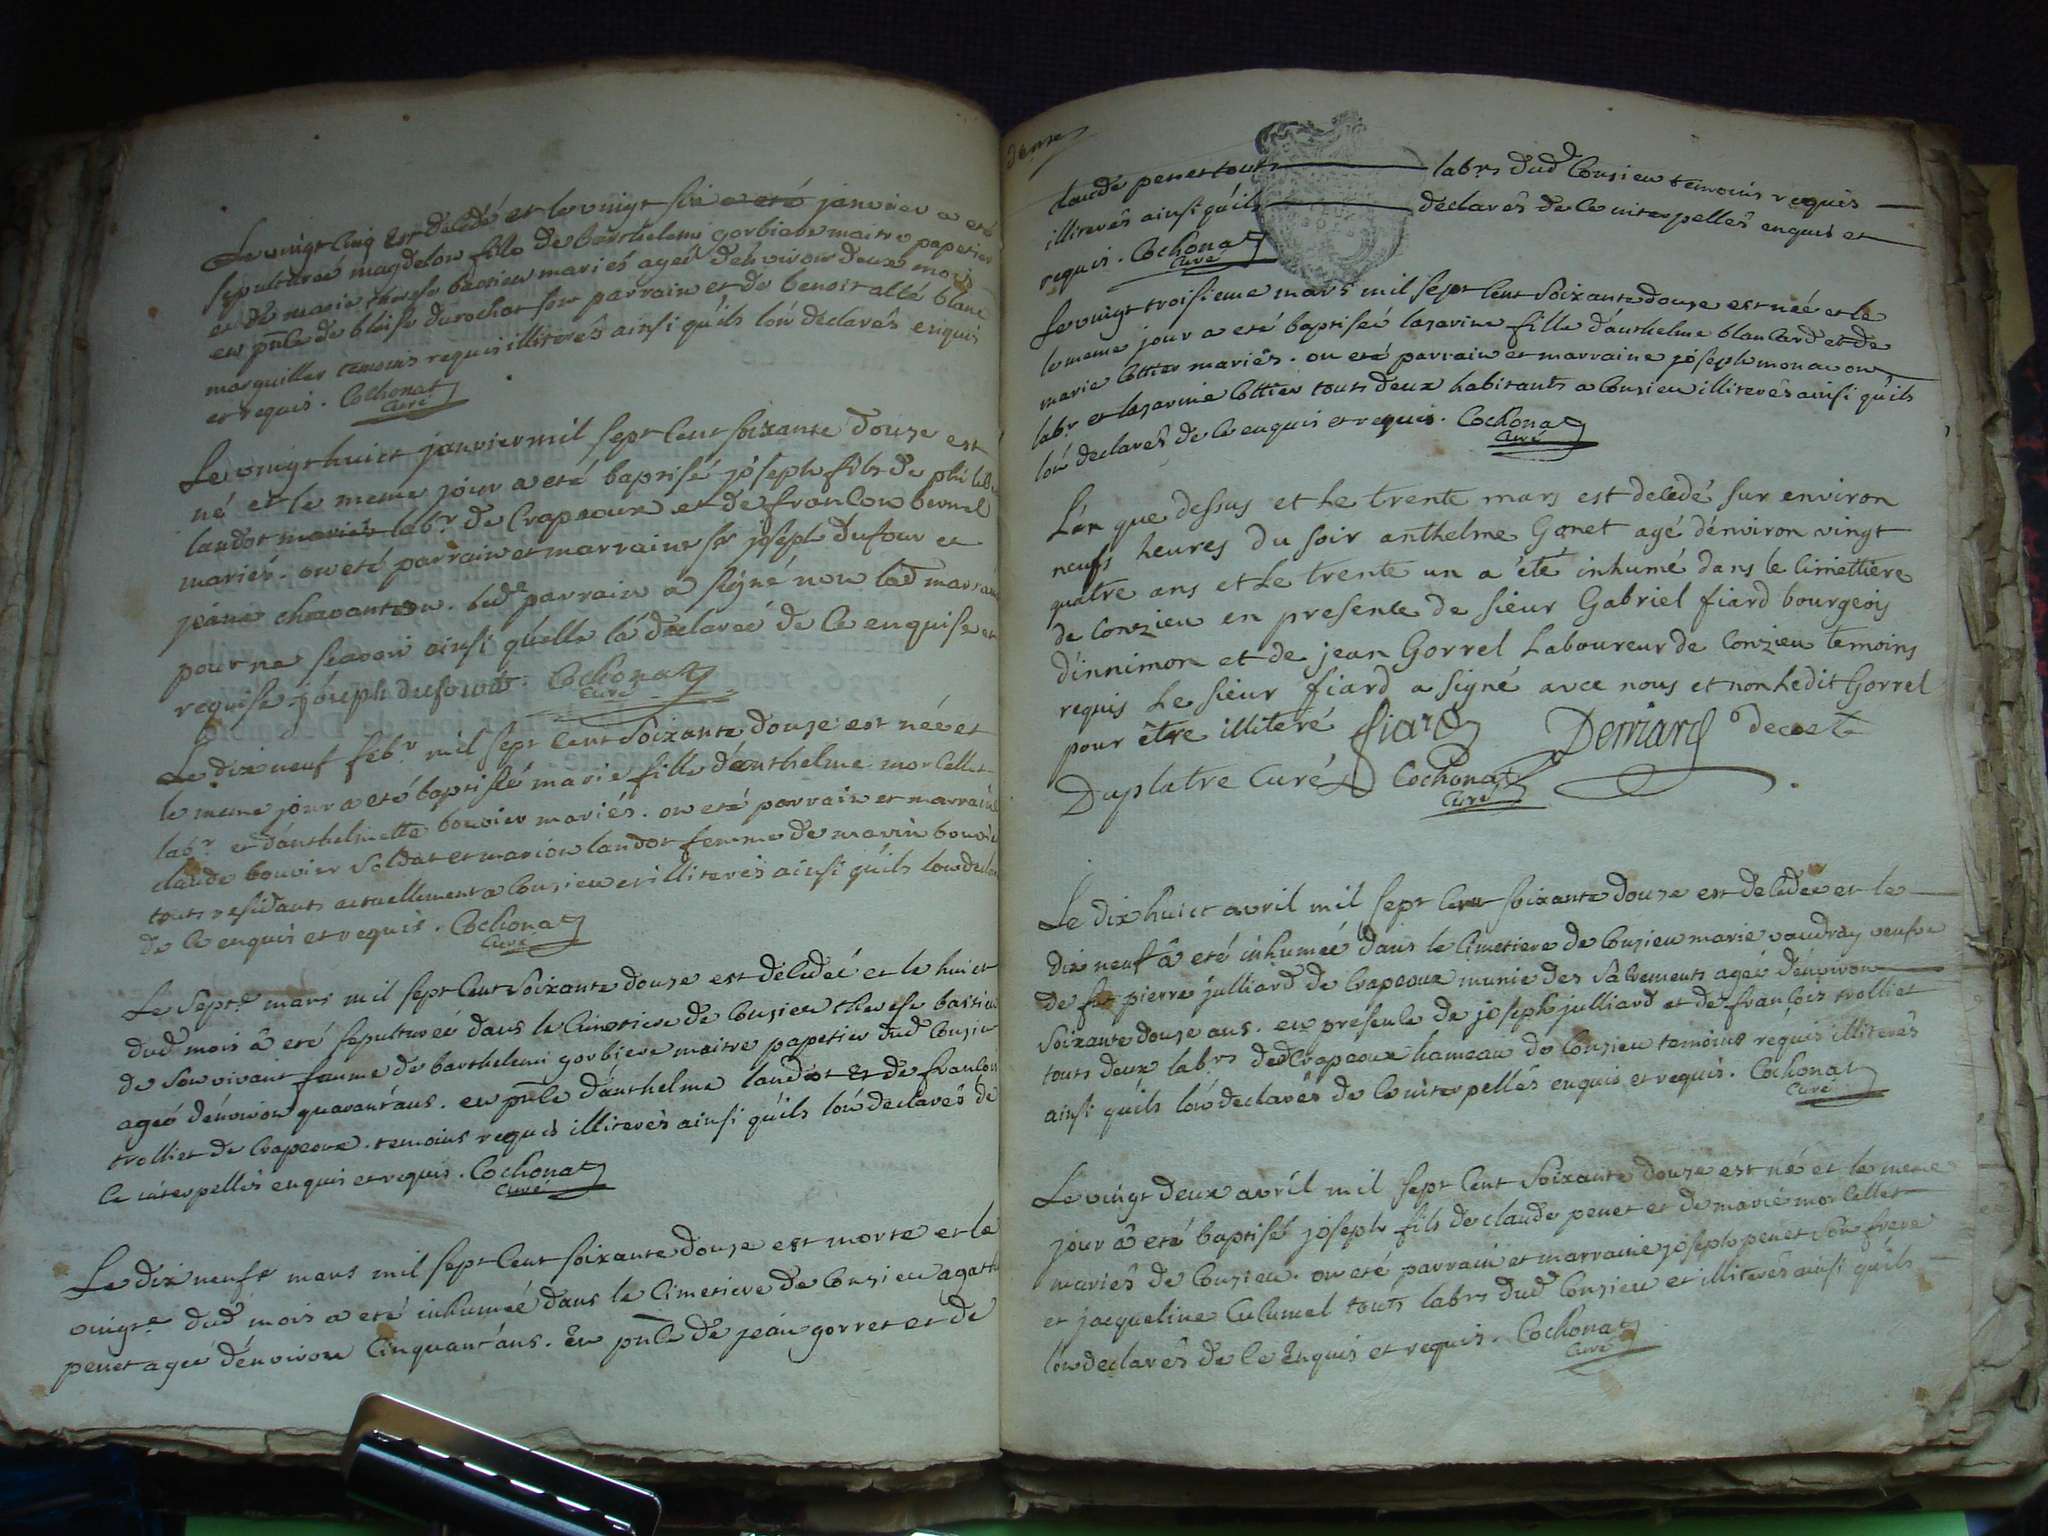 Le vingt cinq est decedé et le vingt six a eté janvier a eté
sepulturée magdelon fille de barthelemi gorbiere maitre papetier
et de marie therese bastien mariés agée d'environ deux mois
en pnce de blaise durochat son parrain et de benoit allé blanc
marguiller temoins requis illiterés ainsi qu'ils lon declarés enquis
et requis. Cochonat
Curé
Le vingt huict janvier mil sept cent soixante douse est
né et le meme jour a eté baptisé joseph fils de phi
landot mariés labr de Crapeoux et de francon
mariés. on eté parrain et marraine sr joseph dufour et
jeane chavanton. led parrain a signé non lad
pour ne scavoir ainsi quelle la declareé de ce enquise et
requise joseph dufour. Cochonat
Curé
Le dix neuf febr mil sept cent soixante douse est née et
le meme jour a eté baptisée marie fille d'anthelme morcellet
labr et danthelmette bouvier mariés. on eté parrain et marraine
claude bouvier soldat et marion landot femme de marin bouvier
touts residants actuellement a Consieu et illiterés ainsi qu'ils lon
de ce enquis et requis. Cochonat
Curé
Le septe mars mil sept cent soixante douse est decedeé et le huict
dud mois â eté sepultureé dans le Cimetiere de Consieu therese bastien
de son vivant femme de barthelemi gorbiere maitre papetier dud Consieu
ageé d'environ quarant'ans. en pnce d'anthelme landot et de francois
trolliet de Crapeoux. temoins requis illiterés ainsi qu'ils lon declarés de
ce interpellés enquis et requis. Cochonat
Curé
Le dix neufe mars mil sept cent soixante douse est morte et le
vingte dud mois a eté inhumeé dans le Cimetiere de Consieu
penet agée d'environ Cinquant'ans. En pnce de jean gorret et de
claude penet touts labrs dud Consieu temoins requis
illiterés ainsi qu'ils declarés de ce interpellés enquis et
requis. Cochonat
Curé
Le vingt troisieme mars mil sept cent soixante douse est née et le
le meme jour a eté baptiseé lasarine fille d'anthelme blanchard et de
marie Cottier mariés. on eté parrain et marraine joseph monavon
labr et lasarine Cottier touts deux habitants a Consieu illiterés ainsi qu'ils
lon declarés de ce enquis et requis. Cochonat
Curé
L'an que dessus et le trente mars est decedé sur environ
neufs heures du soir anthelme Gonet agé d'environ vingt
quatre ans et le trente un a été inhumé dans le Cimettiere
de Conzieu en presente de sieur Gabriel fiard bourgeois
d'innimon et de jean Gorrel Laboureur de Conzieu temoins
requis Le sieur fiard a signé avec nous et non Ledit Gorrel
pour être illiteré fiard
Duplatre Curé Cochonat
Curé
Le dix huict avril mil sept cent soixante douse est decedée et le
dix neuf â eté inhumeé dans le Cimetiere de Consieu marie vaudray veufve
de ft pierre julliard de Crapeoux munie des sacrements ageé d'environ
soixante douse ans. en presence de joseph julliard et de françois trolliet
touts deux labrs ded Crapeoux hameau de Consieu temoins requis illiterés
ainsi qu'ils lon declarés de ce interpellés enquis et requis. Cochonat
Curé
Le vingt deux avril mil sept cent soixante douse est né et le meme
jour â eté baptisé joseph fils de claude penet et de marie morcellet
mariés de Consieu. on eté parrain et marraine joseph penet son frere
et jacqueline Culumel touts labrs dud Consieu et illiterés ainsi qu'ils
lon declarés de ce Enquis et requis. Cochonat
Curé